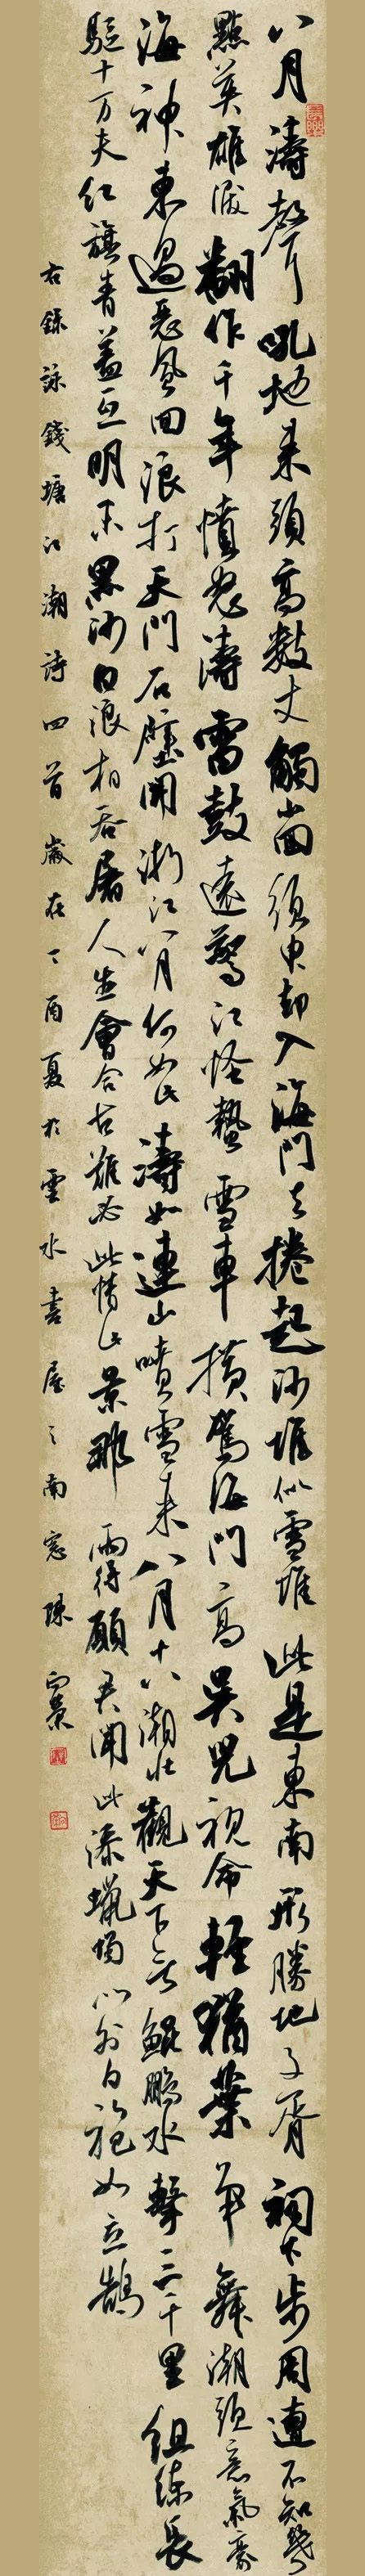 八月濤聲吼地來頭高數丈觸山回須臾却入海門去捲起沙堆似雪堆此是東南形勝地子胥祠下步周遭不知幾
點英雄淚翻作千年憤怒濤雷鼓遠驚江怪蟄雪車橫駕海門高吳兒視命輕猶葉争舞潮頭意氣豪
海神東過惡風回浪打天門石壁開浙江八月何如此濤如連山噴雪來八月十八潮壯觀天下無鯤鵬水擊三千里組練長
驅十万夫紅旗青蓋互明没黑沙白浪相吞屠人生會合古難必此情此景那兩得願君聞此添蠟燭門外白袍如立鵠
右錄詠錢塘江潮詩四首歲在丁酉夏於雲水書屋之南窓陳